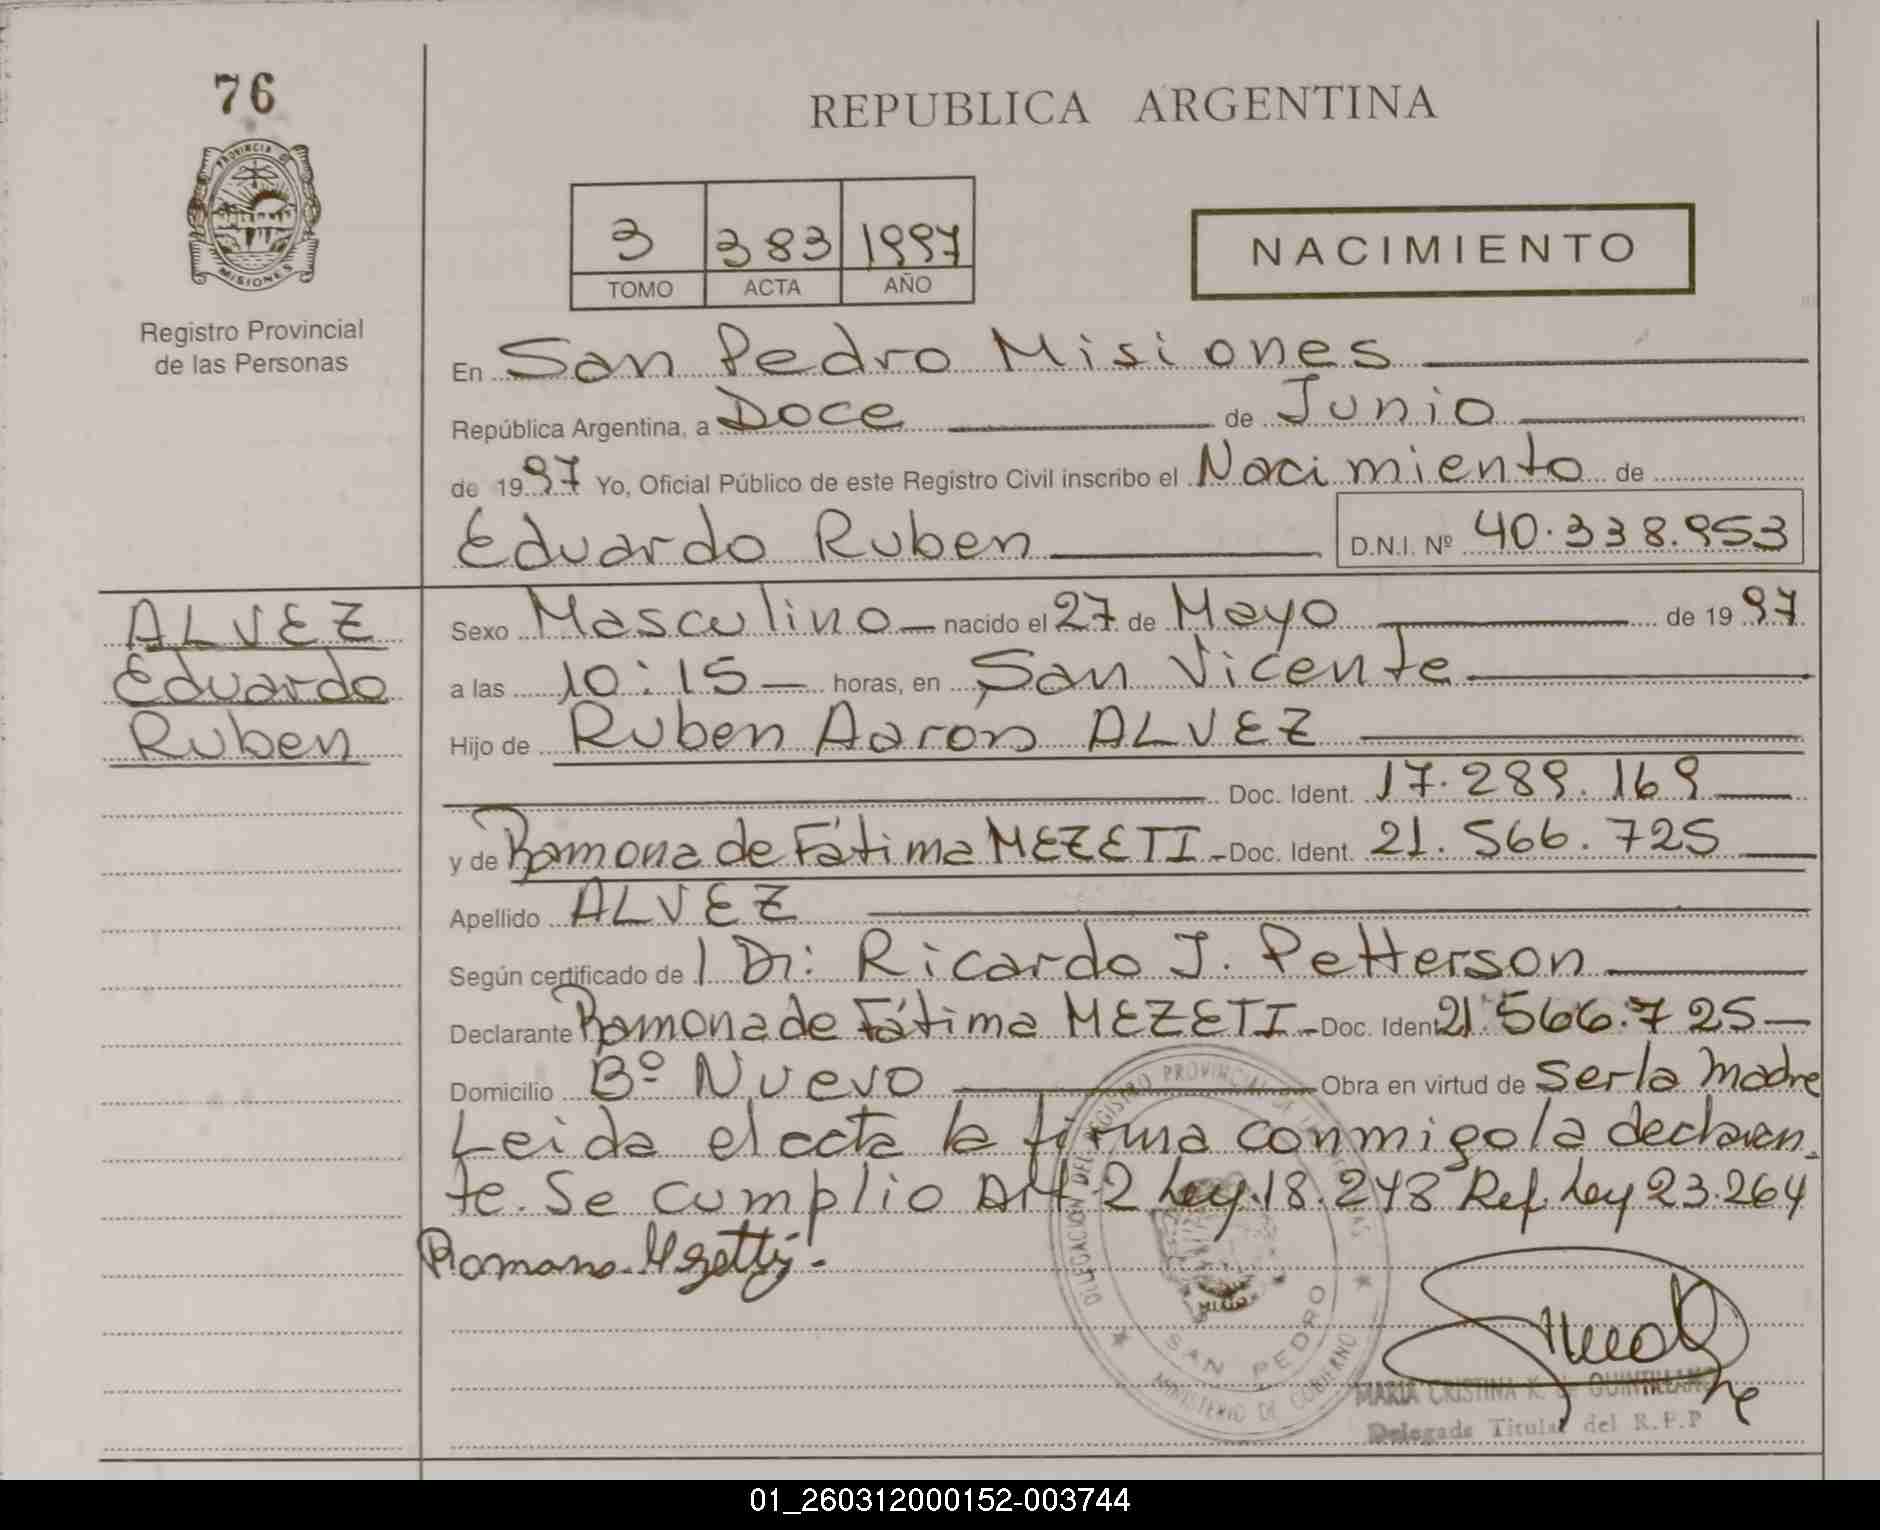 76
PROVINCIA D
MISIONES
Registro Provincial
de las Personas
REPUBLICA ARGENTINA
3 383 1997
TOMO ACTA AÑO
NACIMIENTO
En San Pedro Misiones
República Argentina, a Doce de Junio
de 1997 Yo, Oficial Público de este Registro Civil inscribo el Nacimiento de
Eduardo Ruben D.N.I. Nº 40.338.953
ALVEZ
Eduardo
Ruben
Sexo Masculino nacido el 27 de Mayo de 1997
a las 10:15 horas, en San Vicente
Hijo de Ruben Aaron ALVEZ
Doc. Ident. 17.289.169
y de Ramona de Fátima MEZETI Doc. Ident. 21.566.725
Apellido ALVEZ
Según certificado de Dr: Ricardo J. Petterson
Declarante Ramona de Fátima MEZETI Doc. Ident. 21.566.725
Domicilio Bº Nuevo Obra en virtud de ser la madre
Leida el acta la firma conmigo la declaran
te. Se cumplio Art. 2 Ley. 18.248 Ref. Ley 23.264
Ramona Mezetti
DELEGACION DEL REGISTRO PROVINCIAL DE LAS PERSONAS
SAN PEDRO
MINISTERIO DE GOBIERNO
MARIA CRISTINA K. de QUINTILLANO
Delegada Titular del R.P.P
01_260312000152-003744